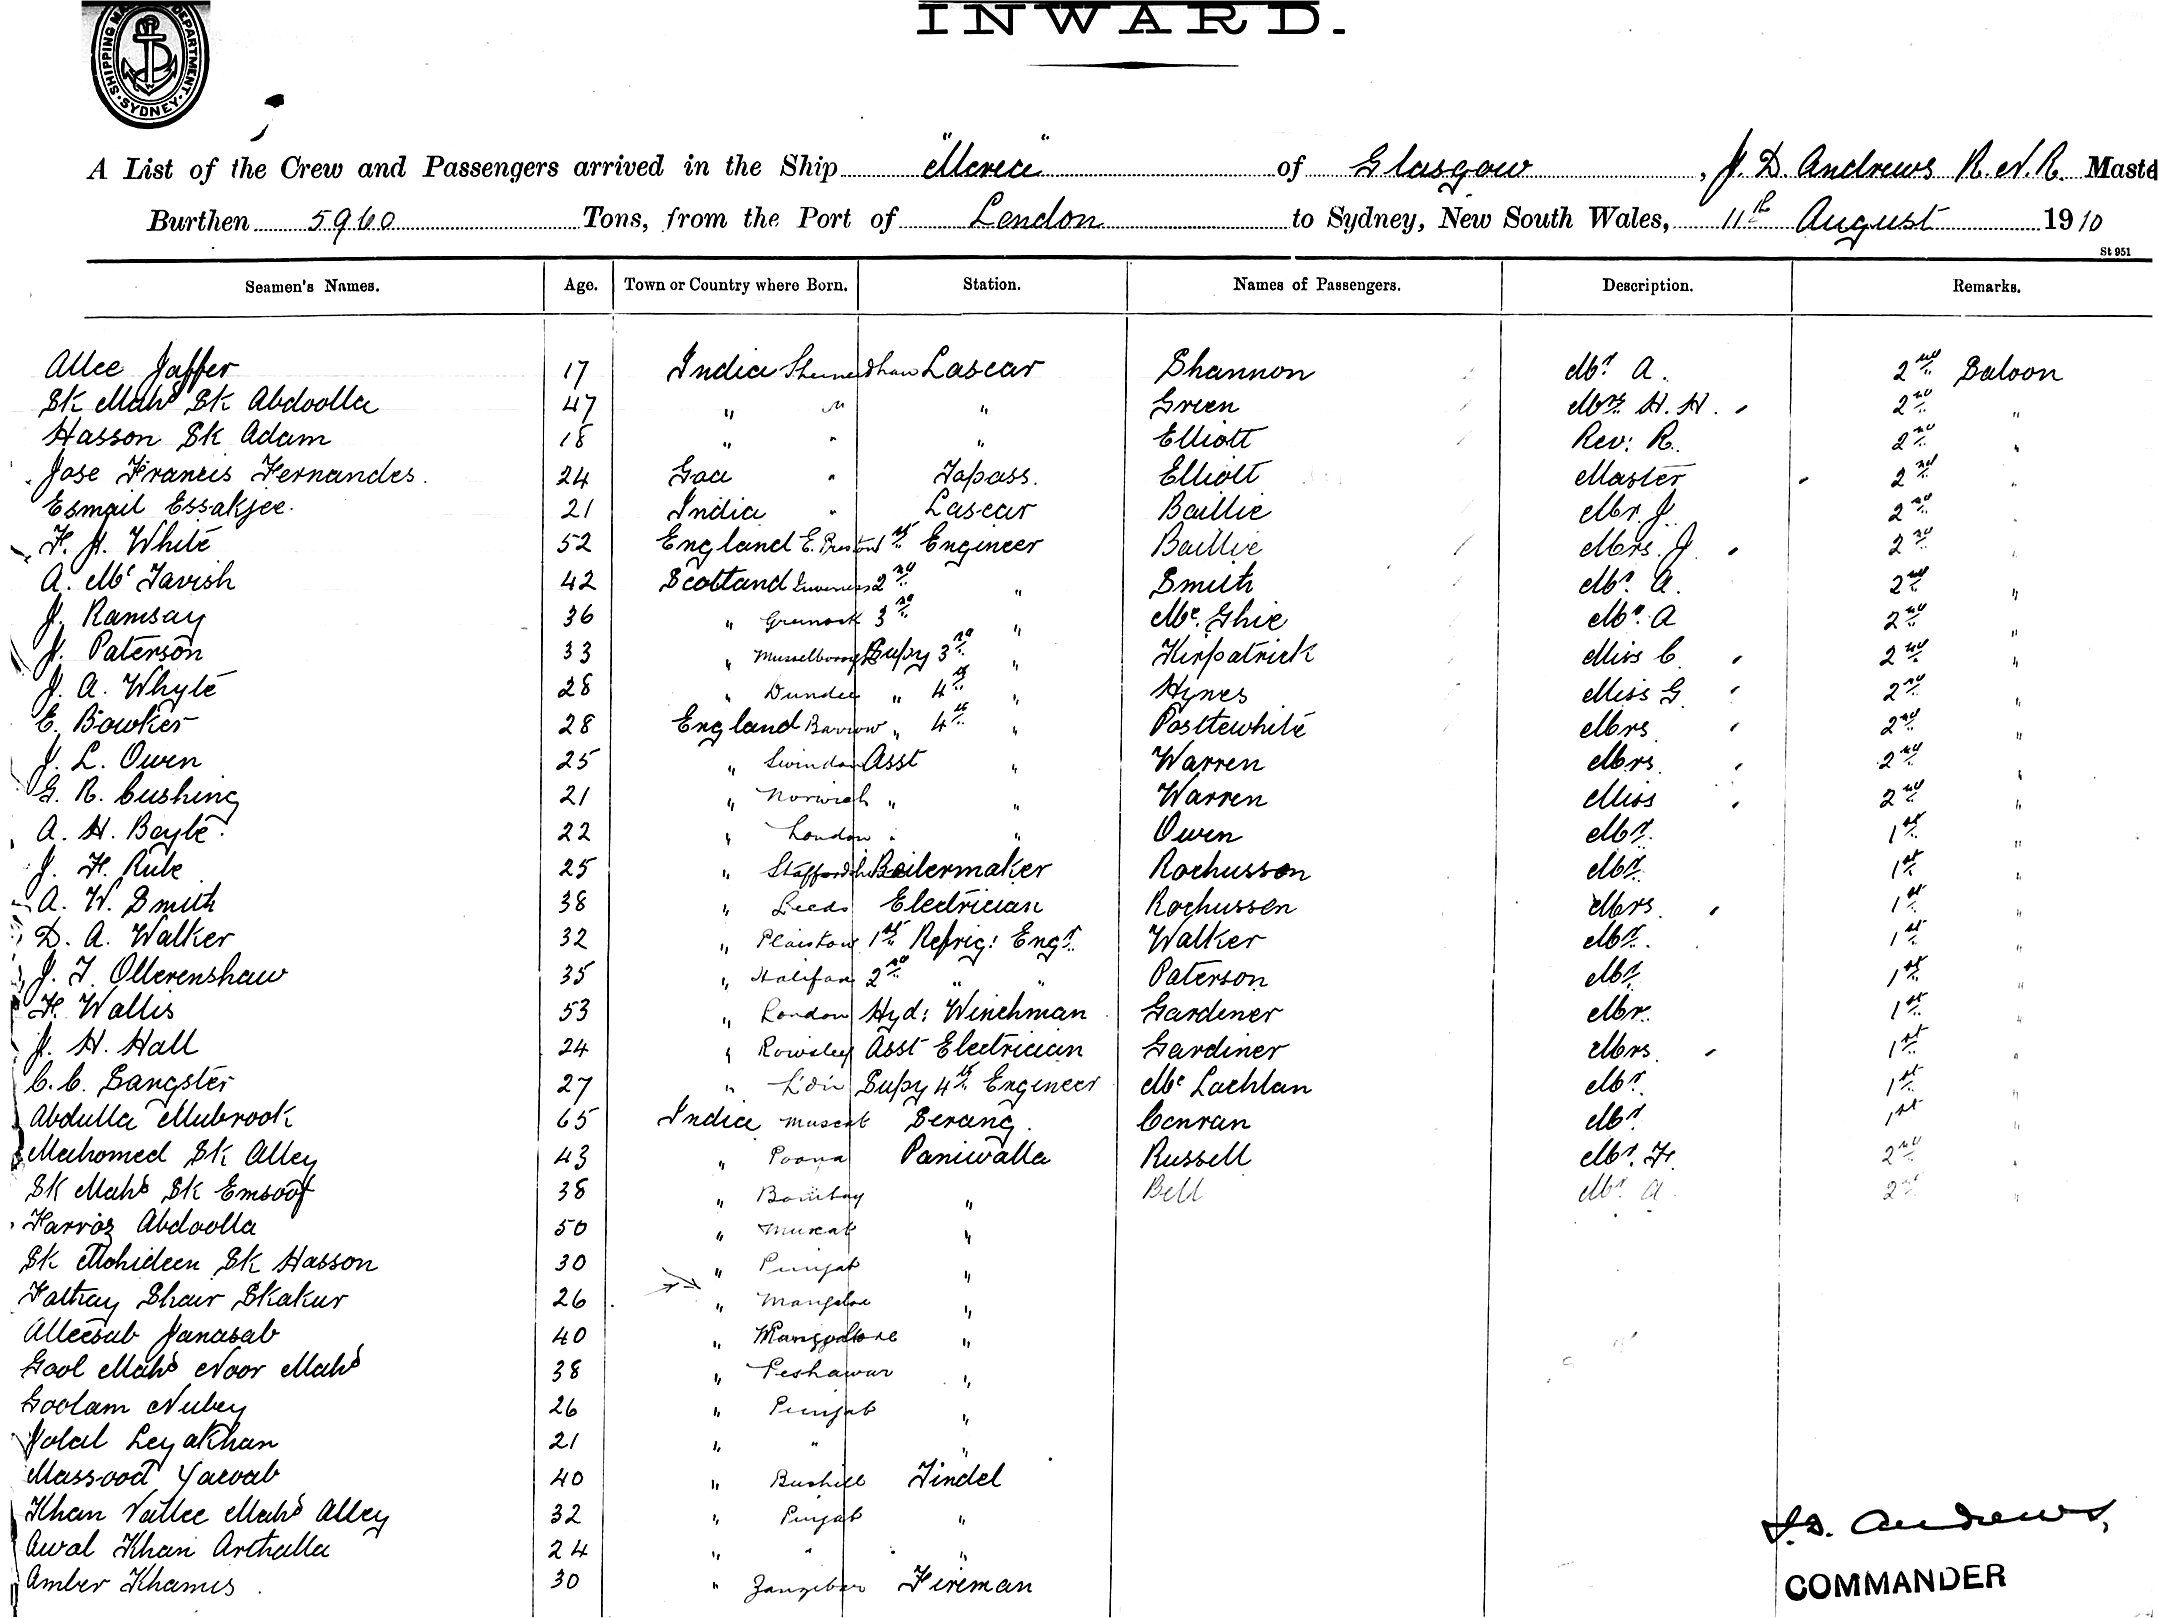 SHIPPING MASTER'S DEPARTMENT. SYDNEY.
INWARD.
A List of the Crew and Passengers arrived in the Ship "Morea" of Glasgow, J. D. Andrews R.N.R. Maste
Burthen 5960 Tons, from the Port of London to Sydney, New South Wales, 11th August 1910
St 951
Seamen's Names. Age. Town or Country where Born. Station. Names of Passengers. Description. Remarks.
Allee Jaffer 17 India Lascar Shannon Mr. A. 2nd Saloon
Sk Mahd Sk Abdoolla 47 " " " Green Mrs. H. H. 2nd "
Hasson Sk Adam 18 " " " Elliott Rev: R. 2nd "
Jose Francis Fernandes. 24 Goa " Topass. Elliott Master 2nd "
Esmail Essakjee. 21 India " Lascar Baillie Mr. J. 2nd "
F. J. White 52 England E. Preston 1st Engineer Baillie Mrs. J. 2nd "
A. McTavish 42 Scotland Inverness 2nd " Smith Mr. A. 2nd "
J. Ramsay 36 " Greenock 3rd " McGhie Mr. A 2nd "
J. Paterson 33 " Musselborough Supy 3rd " Kirpatrick Miss C. 2nd "
J. A. Whyte 28 " Dundee " 4th " Hynes Miss G. 2nd "
E. Bowker 28 England Barrow " 4th " Posttewhite Mrs. 2nd "
J. L. Owen 25 " Swindon Asst " Warren Mrs. 2nd "
G. R. Cushing 21 " Norwich " " Warren Miss 2nd "
A. H. Boyle. 22 " London " " Owen Mr. 1st "
J. F. Rube 25 " Staffordshire Boilermaker Rochusson Mr. 1st "
A. W. Smith 38 " Leeds Electrician Rochussen Mrs. 1st "
D. A. Walker 32 " Plaistow 1st Refrig: Engr. Walker Mr. 1st "
J. T. Ollerenshaw 35 " Halifax 2nd " " Paterson Mr. 1st "
F. Wallis 53 " London Hyd: Winchman Gardiner Mr. 1st "
J. H. Hall 24 " Rowsley Asst Electrician Gardiner Mrs. 1st "
C. C. Sangster 27 " L'don Supy 4th Engineer McLachlan Mr. 1st "
Abdulla Mubrook 65 India Muscat Serang. Conran Mr. 1st "
Mahomed Sk Alley 43 " Poona Paniwalla Russell Mr. F. 2nd "
Sk Mahd Sk Emsoof 38 " Bombay " Bell Mr. A. 2nd "
Farroz Abdoolla 50 " Muscat "
Sk Mohideen Sk Hasson 30 " Punjab "
Fattay Shair Skakur 26 " Mangalore "
Alleesab Janasab 40 " Mangalore "
Gool Mahd Noor Mahd 38 " Peshawur "
Goolam Nubey 26 " Punjab "
Jolal Leyakhan 21 " " "
Massood Yacoab 40 " Bushill Tindel
Khan Vallee Mahd Alley 32 " Punjab "
Awal Khan Arthalla 24 " " "
Amber Khamis 30 " Zanzibar Fireman
J. D. Andrews,
COMMANDER